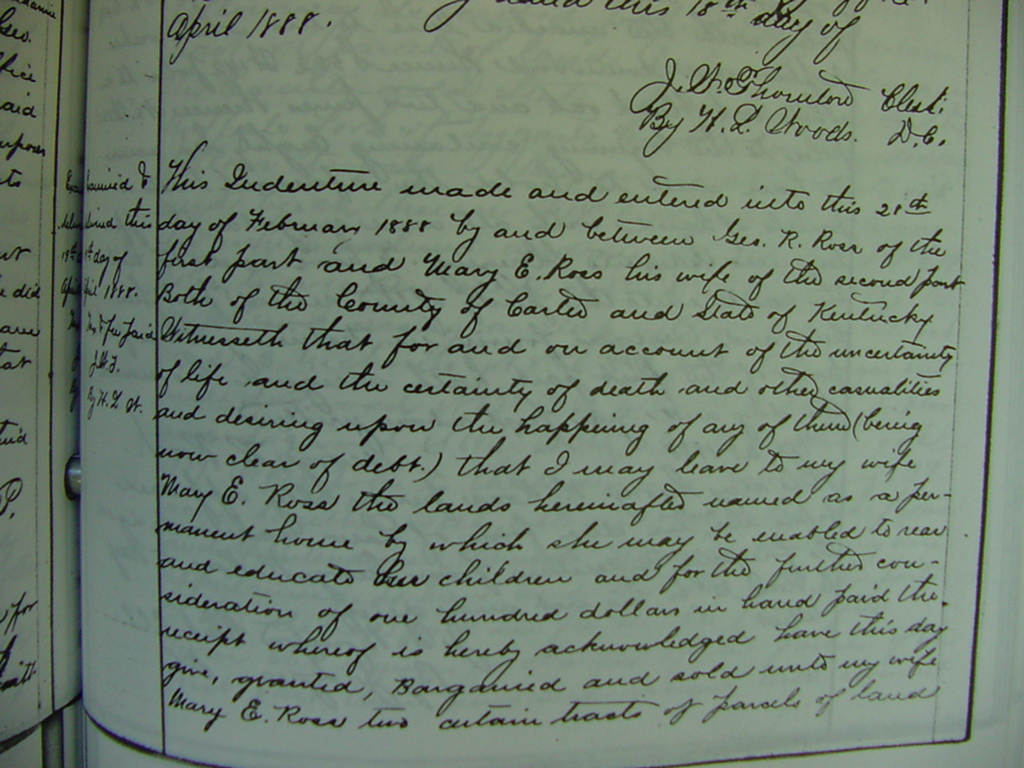 dated this 18th day of
April 1888.
Clerk
By H. L. Woods. D.C.
This Indenture made and entered into this 21st
day of February 1888 by and between Geo. R. Ross of the
first part and Mary E. Ross his wife of the second part
Both of the County of Carter and State of Kentucky
Witnesseth that for and on account of the uncertainty
of life and the certainty of death and other casualities
and desiring upon the happening of any of them (being
now clear of debt.) that I may leave to my wife
Mary E. Ross the lands hereinafter named as a per-
manent home by which she may be enabled to rear
and educate her children and for the further con-
sideration of one hundred dollars in hand paid the
receipt whereof is hereby acknowledged have this day
give, granted, Barganied and sold unto my wife
Mary E. Ross two certain tracts of parcels of land
this
day of
April 1888.
By H. L. W.